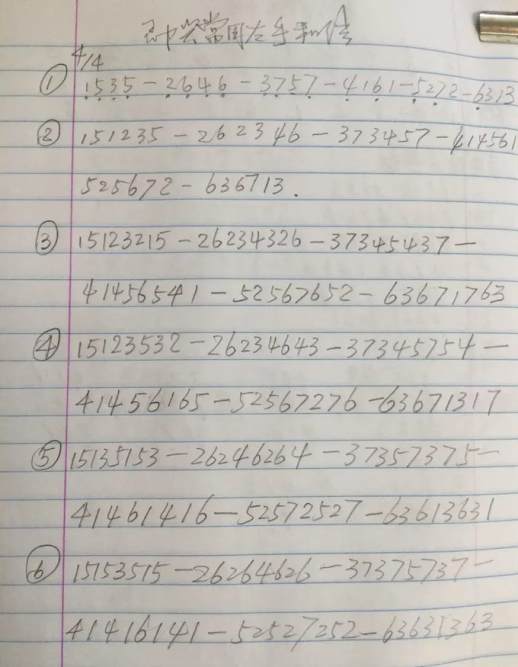 常用左手和弦
4/4
① 1535-2646-3757-4161-5272-6313
② 151235-262346-373457-414561
525672-636713.
③ 15123215-26234326-37345437-
41456541-52567652-63671763
④ 15123532-26234643-37345754-
41456165-52567276-63671317
⑤ 15135153-26246264-37357375-
41461416-52572527-63613631
⑥ 15153515-26264626-37375737-
41416141-52527252-63631363